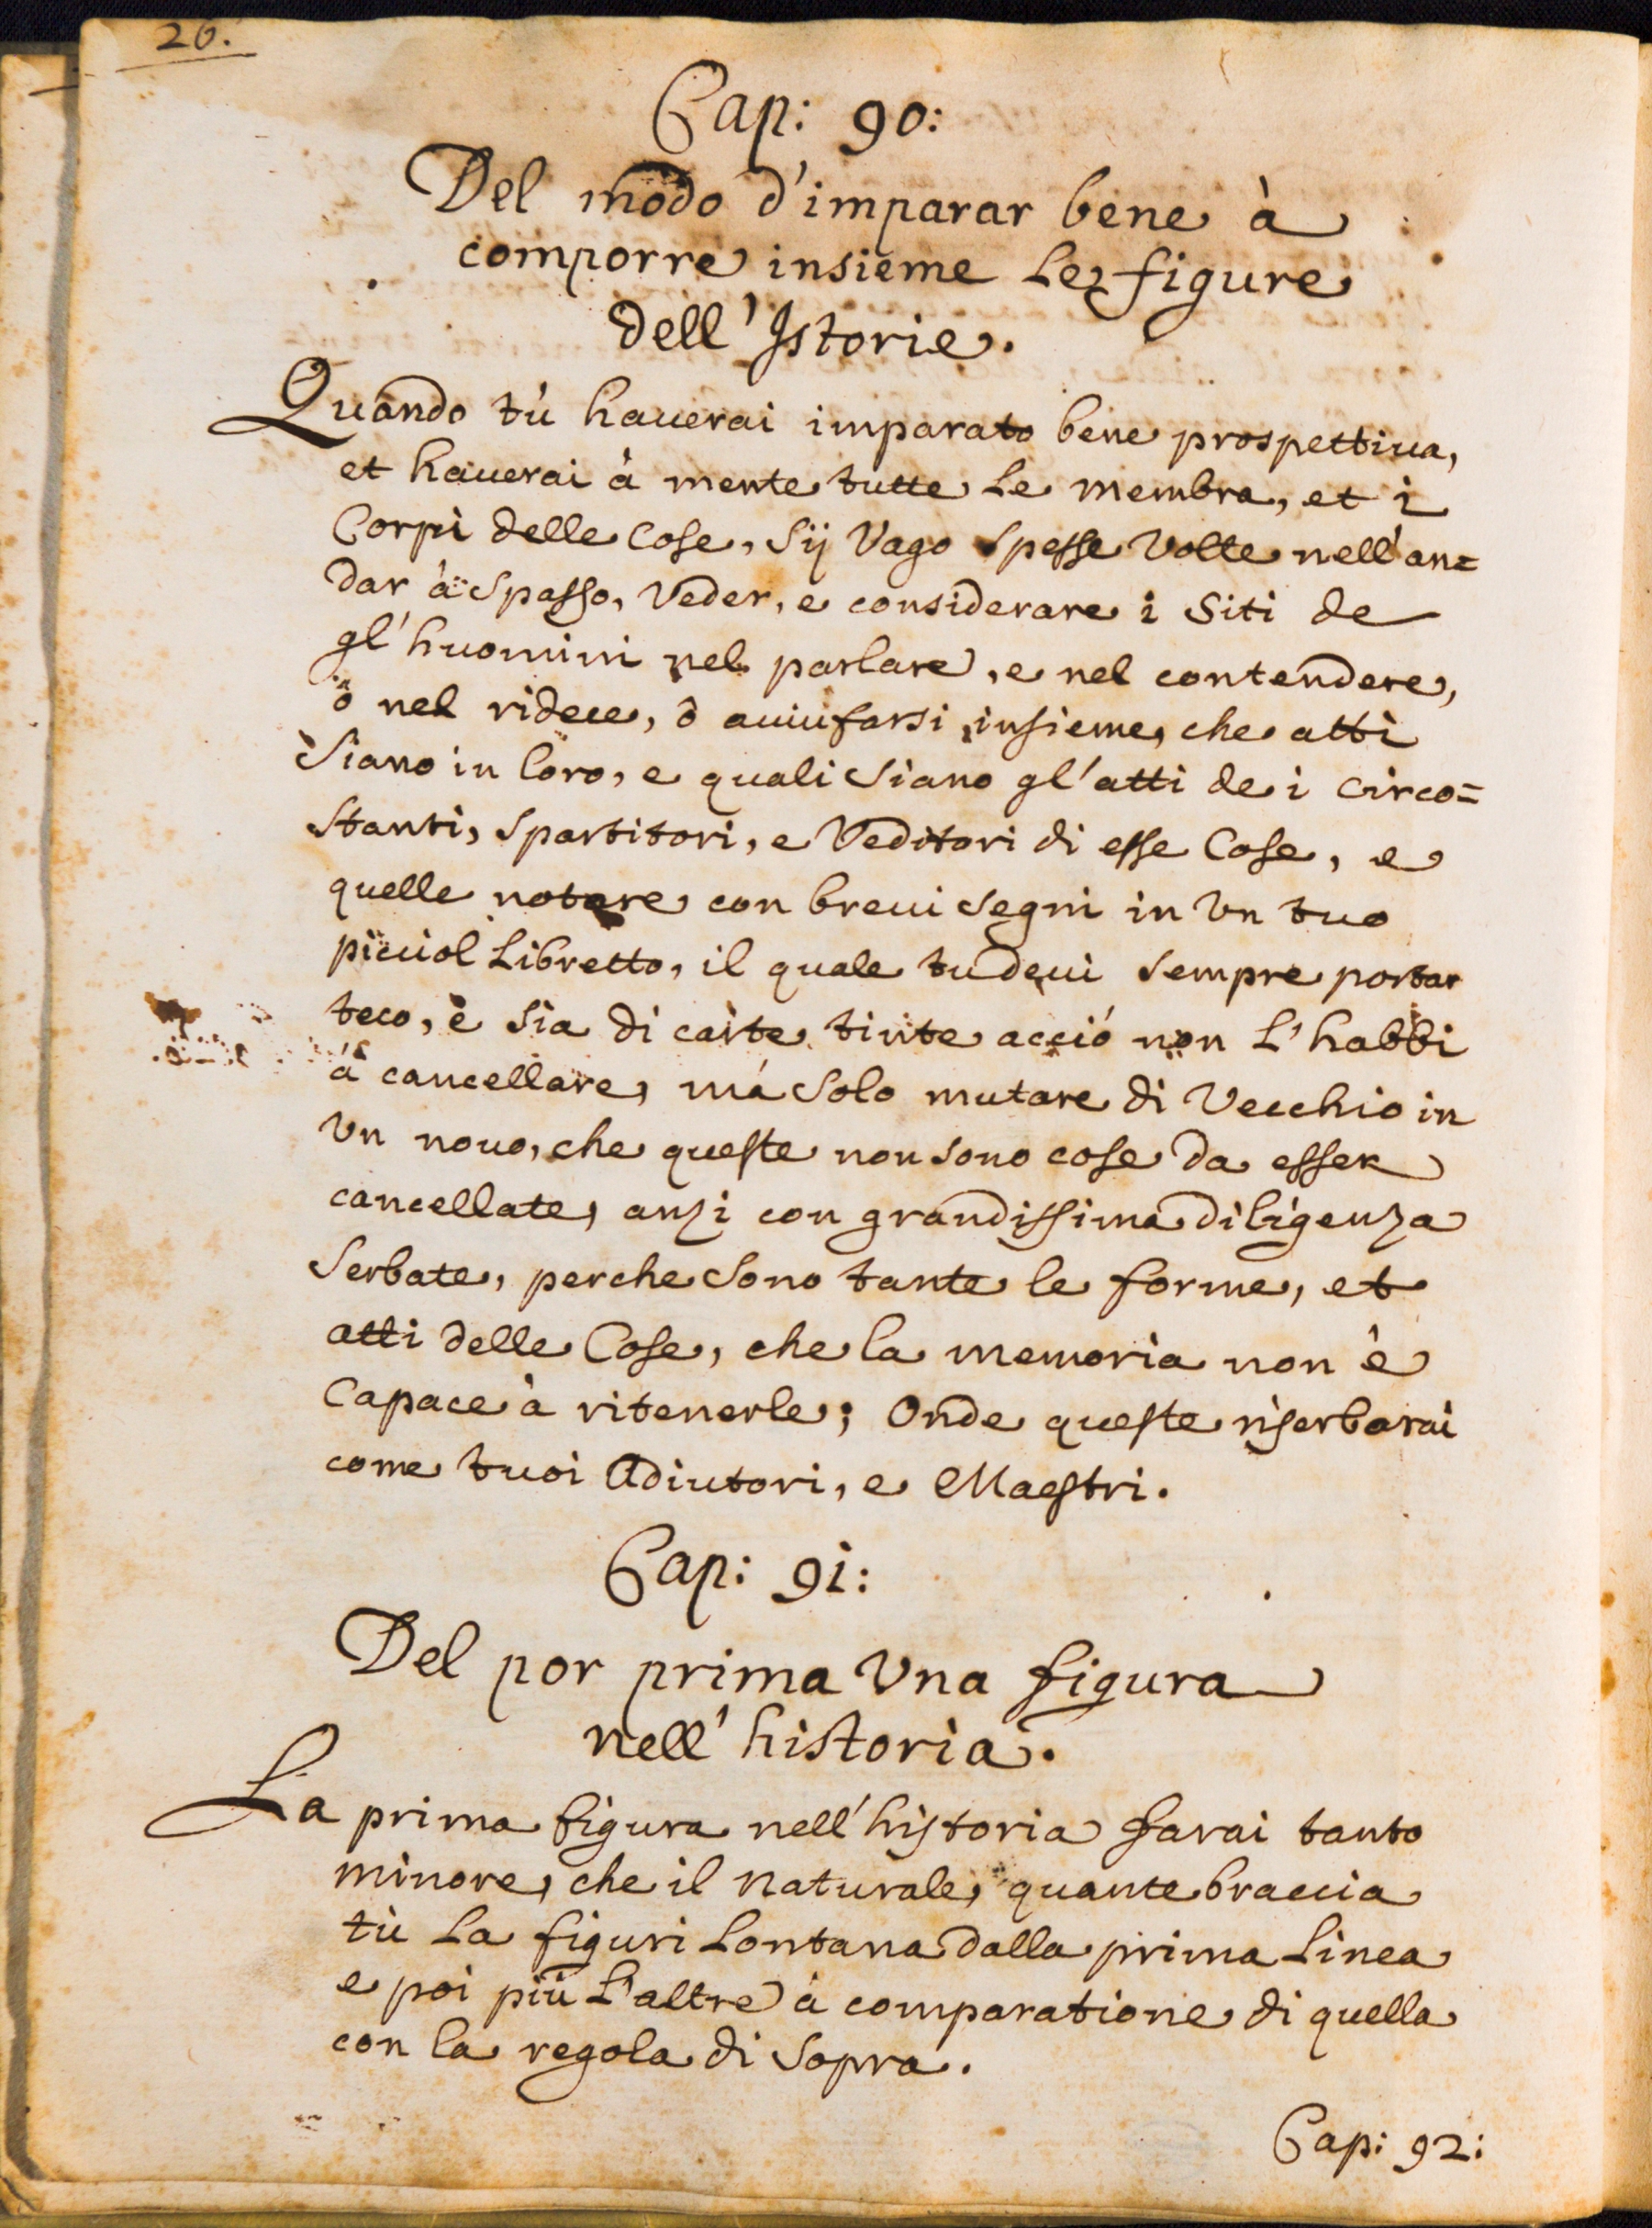 26.
Cap: 90:
Del modo d'imparar bene à
comporre insieme le figure
dell'Istorie.
Quando tù hauerai imparato bene prospettiua,
et hauerai à mente tutte le membra, et i
Corpi delle Cose, sij Vago spesse Volte nell'an=
dar à spasso, Veder, e considerare i Siti de
gl'huomini nel parlare, e nel contendere,
ò nel ridere, ò auiufarsi insieme, che atti
siano in loro, e quali siano gl'atti de i circo=
stanti, spartitori, e Veditori di esse Cose, e
quelle notare con breui segni in Vn tuo
picciol Libretto, il quale tu deui sempre portar
teco, è sia di carte tinte acciò non l'habbi
à cancellare, mà solo mutare di Vecchio in
Vn nouo, che queste non sono cose da esser
cancellate, anzi con grandissima diligenza
serbate, perche sono tante le forme, et
atti delle Cose, che la memoria non è
Capace à ritenerle; Onde queste riserbarai
come tuoi Adiutori, e Maestri.
Cap: 91:
Del por prima Vna figura
nell'historia.
La prima figura nell'historia farai tanto
minore, che il naturale, quante braccia
tù la figuri lontana dalla prima linea
e poi più l'altre à comparatione di quella
con la regola di sopra.
Cap: 92: